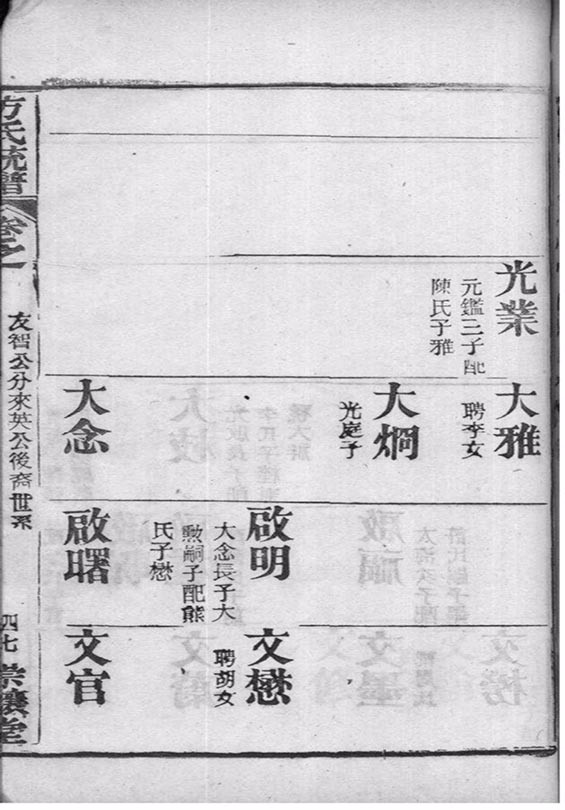 光業
元鑑三子配
陳氏子雅
大雅
聘李女
大烱
光庭子
大念
啟明
大念長子大
勲嗣子配熊
氏子懋
啟曙
文懋
聘胡女
文官
方氏統譜
卷之
友智公分來英公後裔世系
四七
崇讓堂